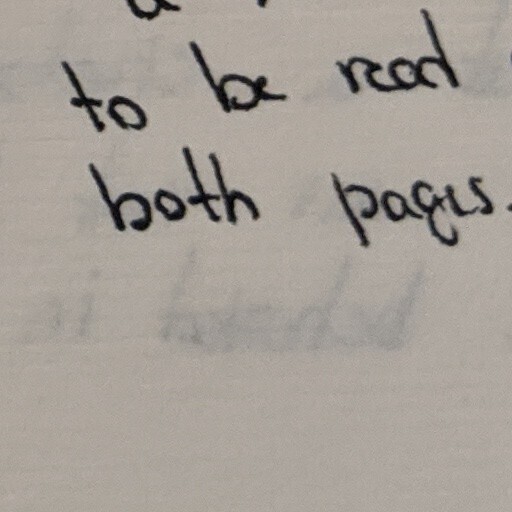 to be read
both pages.